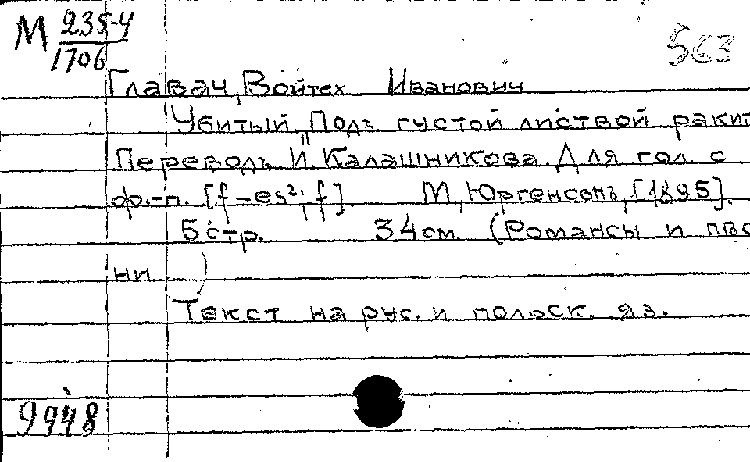 М 235-4
1706
563
Главач, Войтех Иванович
Убитый. Подъ густой листвой ракит
Переводъ И. Калашникова. Для гол. с
ф.-п. [f-es²; f] М., Юргенсонъ, [1895].
5 стр. 34 см. (Романсы и пѣс
ни )
Текст на рус. и польск. яз.
9948